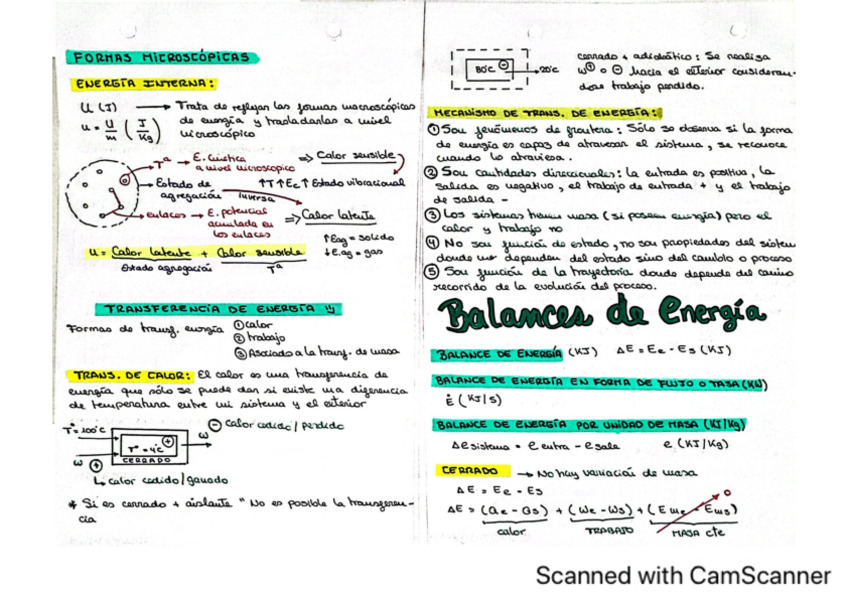 FORMAS MICROSCÓPICAS
ENERGÍA INTERNA:
U (J) → Trata de reflejar las formas macroscópicas
de energía y trasladarlas a nivel
microscópico
u = U/m (J/Kg)
Tª → E. Cinética
a nivel microscopico
⇒ Calor sensible
Estado de
agregación
↑↑T↑Ec↑ Estado vibracional
inversa
enlaces → E. potencial
acumulada en
los enlaces
⇒ Calor latente
↑Eag = solido
↓E.ag = gas
u = Calor latente + Calor sensible
Estado agregación Tª
TRANSFERENCIA DE ENERGÍA
Formas de transf. energía ① calor
② trabajo
③ Asociado a la transf. de masa
TRANS. DE CALOR: El calor es una transferencia de
energía que sólo se puede dar si existe una diferencia
de temperatura entre un sistema y el exterior
T° = 100°C
T° = 4°C +
CERRADO
W
W +
- calor cedido / perdido
↳ calor cedido / ganado
* Si es cerrado + aislante " No es posible la transferen-
cia
80°C - → 20°C
cerrado + adiabático: Se realiza
W⊕ o ⊖ hacia el exterior consideran-
dose trabajo perdido.
MECANISMO DE TRANS. DE ENERGÍA:
① Sou fenómenos de frontera: Sólo se observa si la forma
de energía es capaz de atravesar el sistema, se reconoce
cuando lo atraviesa.
② Sou cantidades direccionales: la entrada es positiva, la
salida es negativo, el trabajo de entrada + y el trabajo
de salida -
③ Los sistemas tienen masa (si poseen energía) pero el
calor y trabajo no
④ No sou función de estado, no sou propiedades del sistem
donde no dependen del estado sino del cambio o proceso
⑤ Sou función de la trayectoria donde depende del camino
recorrido de la evolución del proceso.
Balances de Energía
BALANCE DE ENERGÍA (KJ) ΔE = Ee - Es (KJ)
BALANCE DE ENERGÍA EN FORMA DE FLUJO O TASA (KW)
Ė (KJ/s)
BALANCE DE ENERGÍA POR UNIDAD DE MASA (KJ/Kg)
Δe sistema = e entra - e sale e (KJ/Kg)
CERRADO → No hay variación de masa
ΔE = Ee - Es
ΔE = (Qe - Qs) + (We - Ws) + (Eme - Ems) 0
calor TRABAJO MASA cte
Scanned with CamScanner